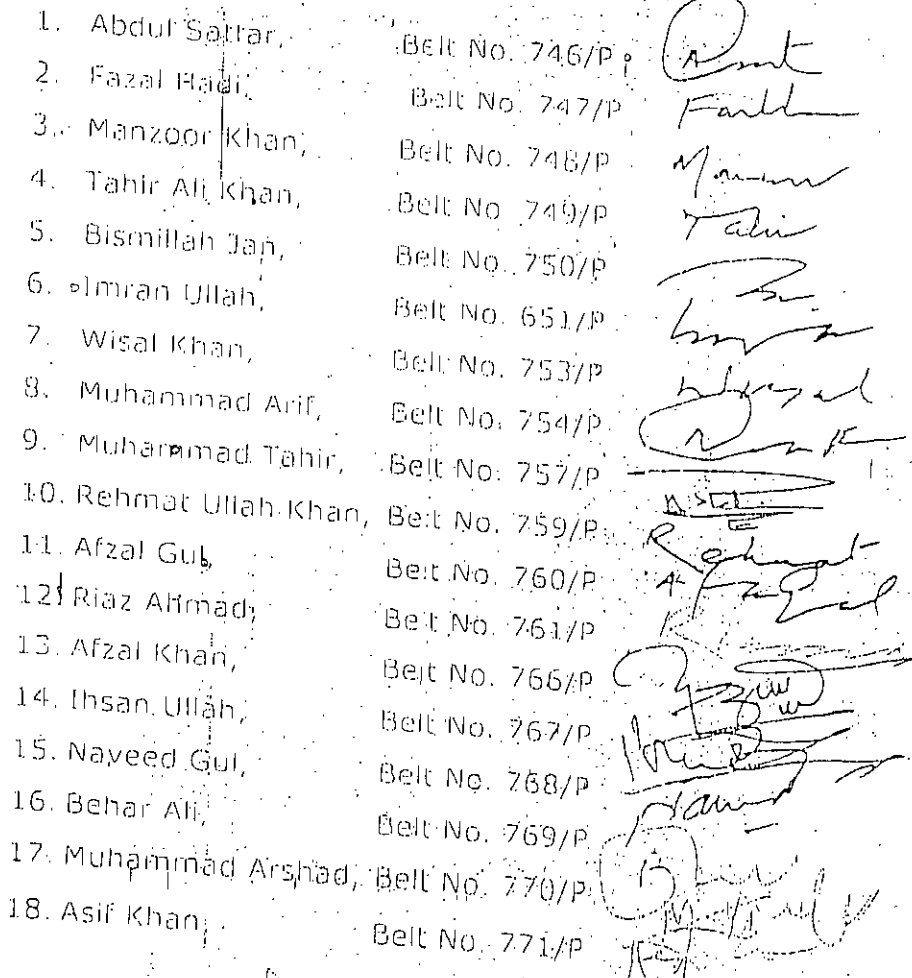 1. Abdul Sattar, Belt No. 746/P
2. Fazal Hadi, Belt No. 747/P Fazlh
3. Manzoor Khan, Belt No. 748/P
4. Tahir Ali Khan, Belt No. 749/P Tahir
5. Bismillah Jan, Belt No. 750/P
6. Imran Ullah, Belt No. 651/P
7. Wisal Khan, Belt No. 753/P
8. Muhammad Arif, Belt No. 754/P
9. Muhammad Tahir, Belt No. 757/P
10. Rehmat Ullah Khan, Belt No. 759/P Rehmat
11. Afzal Gul, Belt No. 760/P Afzal
12. Riaz Ahmad, Belt No. 761/P
13. Afzal Khan, Belt No. 766/P
14. Ihsan Ullah, Belt No. 767/P
15. Naveed Gul, Belt No. 768/P
16. Behar Ali, Belt No. 769/P
17. Muhammad Arshad, Belt No. 770/P
18. Asif Khan, Belt No. 771/P